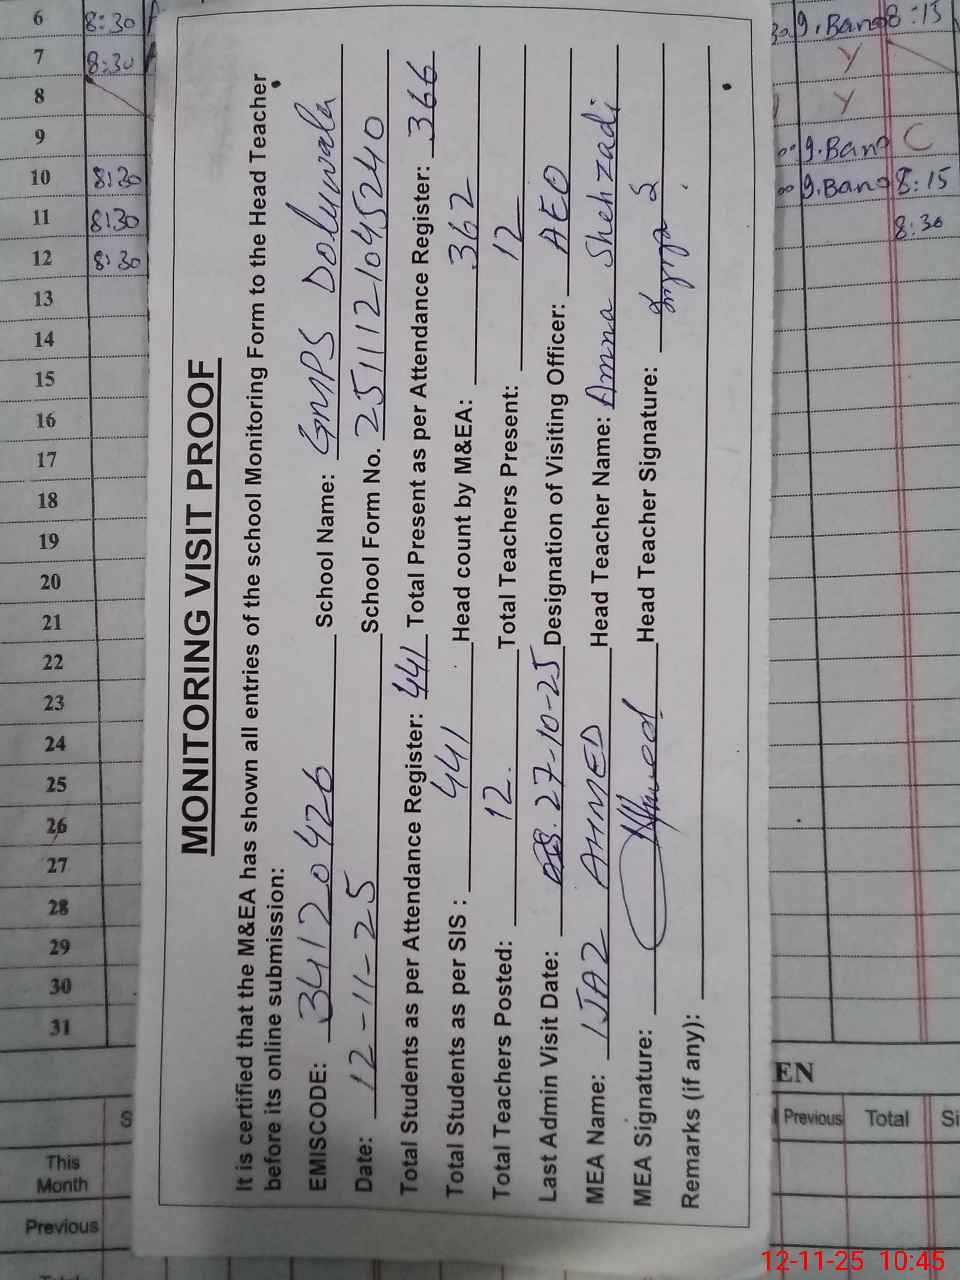 MONITORING VISIT PROOF
It is certified that the M&EA has shown all entries of the school Monitoring Form to the Head Teacher
before its online submission:
EMISCODE: 34120426 School Name: GMPS Doluwala
Date: 12-11-25 School Form No. 2511121045240
Total Students as per Attendance Register: 441 Total Present as per Attendance Register: 366
Total Students as per SIS : 441 Head count by M&EA: 362
Total Teachers Posted: 12 Total Teachers Present: 12
Last Admin Visit Date: 27-10-25 Designation of Visiting Officer: AEO
MEA Name: IJAZ AHMED Head Teacher Name: Amna Shehzadi
MEA Signature: Ahmed Head Teacher Signature:
Remarks (if any):
6 8:30 9.Band 8:15
7 8:30 Y
8 Y
9 9.Band C
10 8:30 9.Band 8:15
11 8:30 8:30
12 8:30
13
14
15
16
17
18
19
20
21
22
23
24
25
26
27
28
29
30
31
EN
S Previous Total Si
This
Month
Previous
Total
12-11-25 10:45